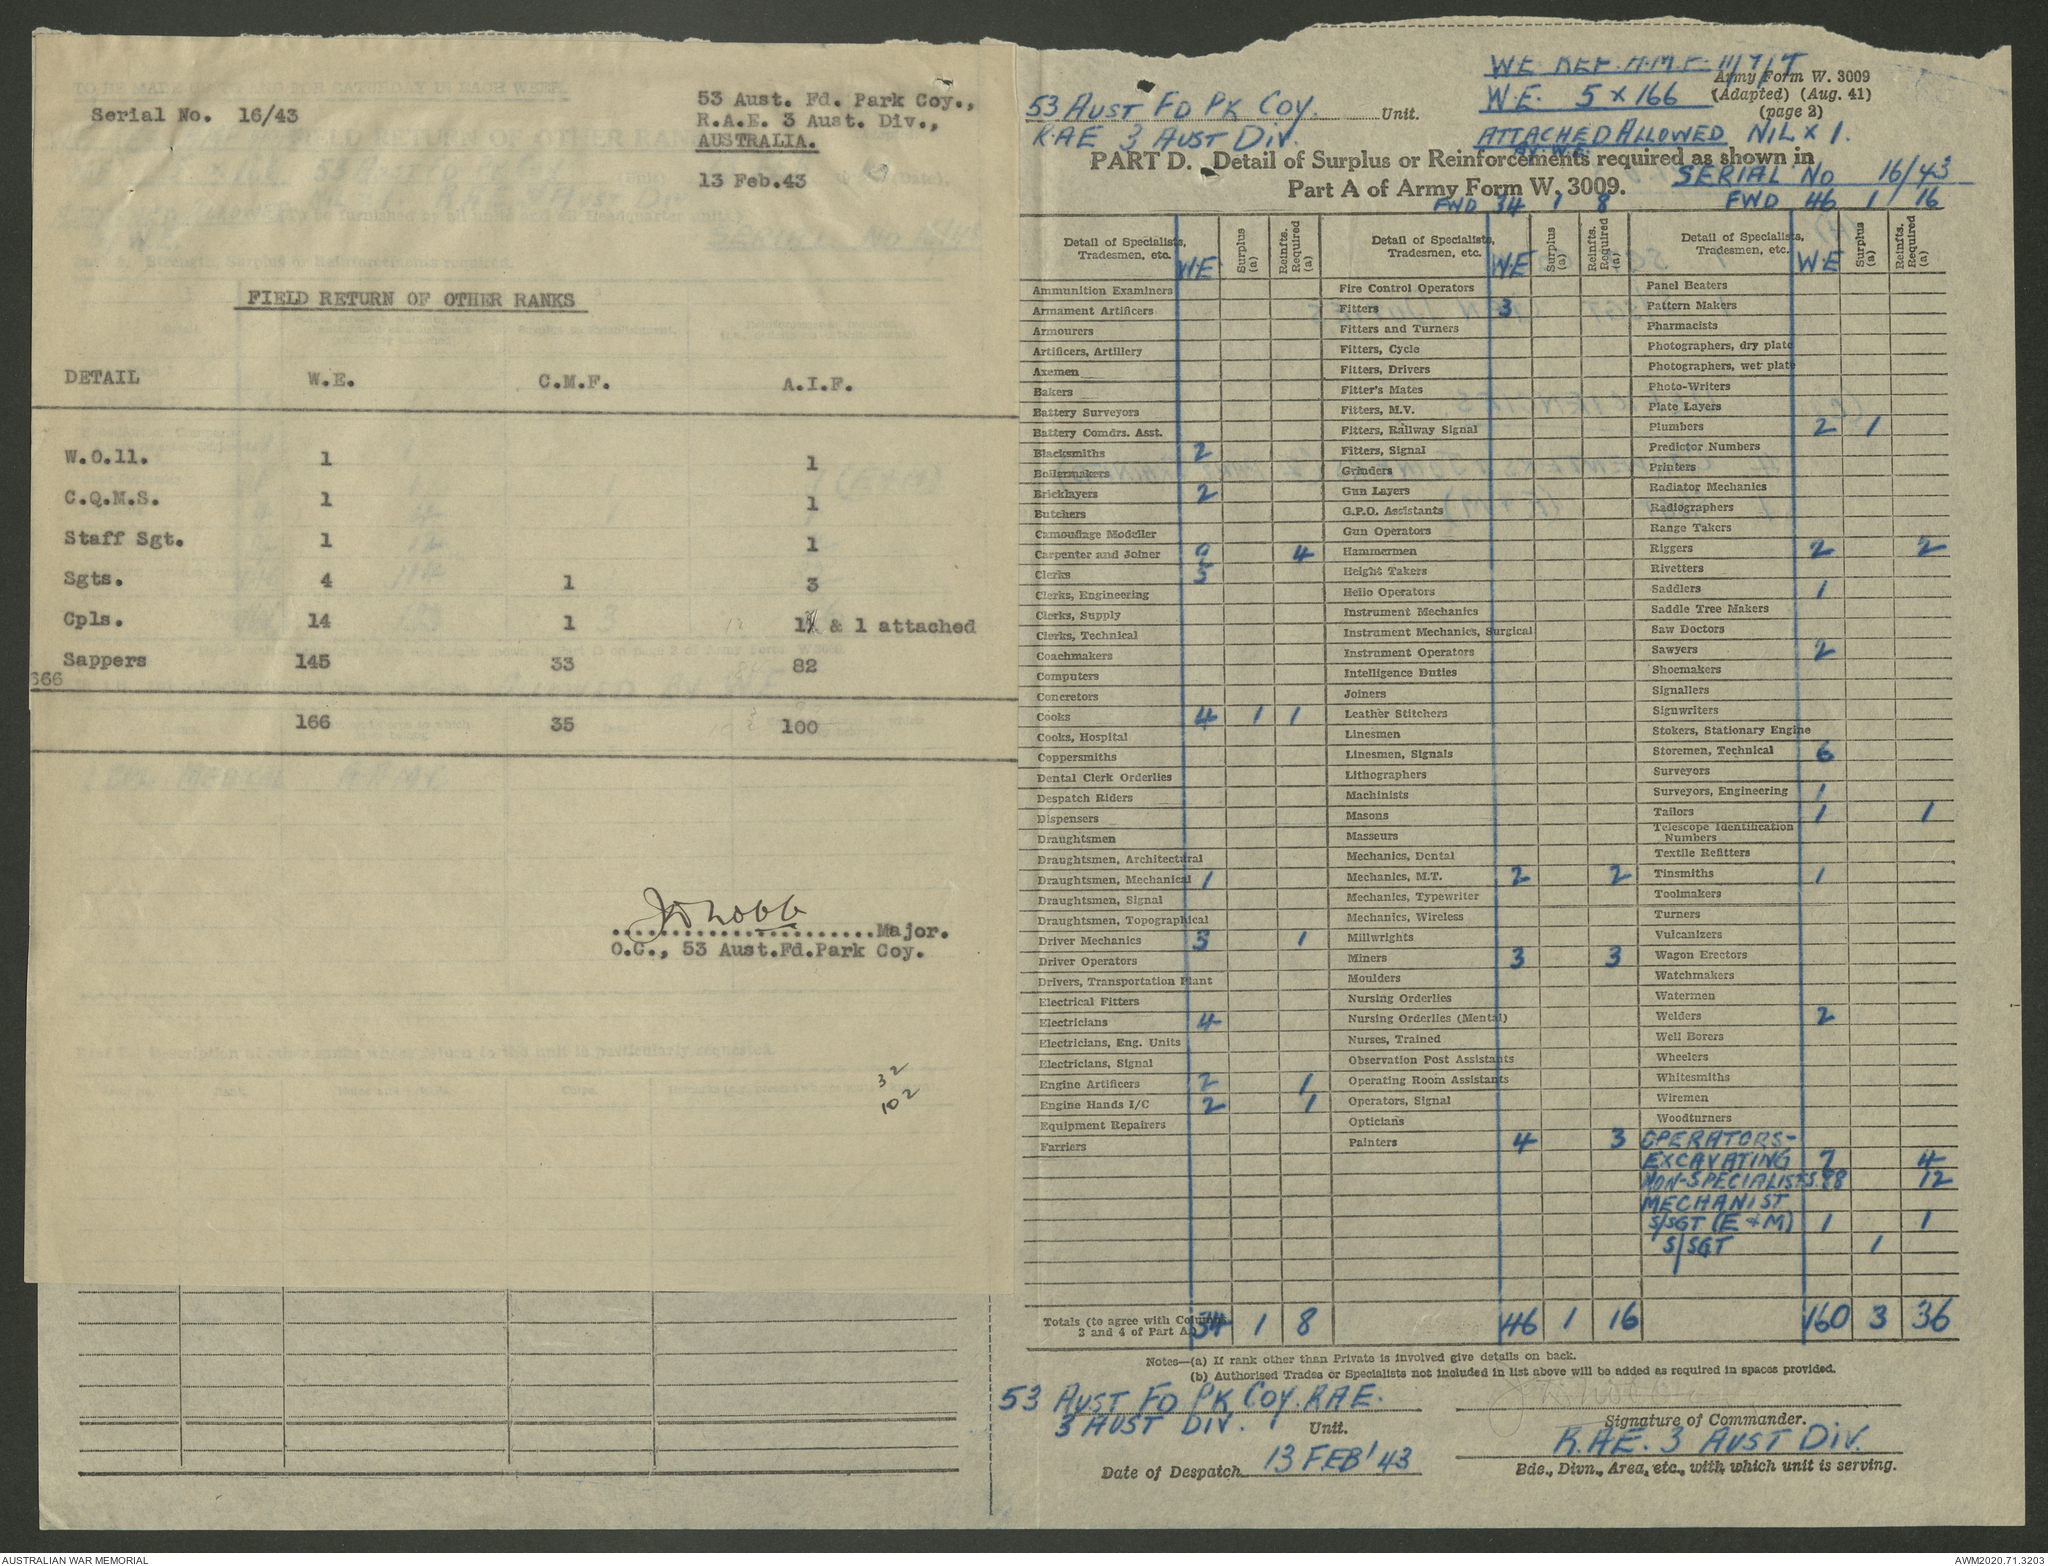 Serial No. 16/43
53 Aust. Fd. Park Coy.,
R.A.E. 3 Aust. Div.,
AUSTRALIA.
13 Feb.43
FIELD RETURN OF OTHER RANKS
DETAIL W.E. C.M.F. A.I.F.
W.O.11. 1 1
C.Q.M.S. 1 1
Staff Sgt. 1 1
Sgts. 4 1 3
Cpls. 14 1 & 1 attached
Sappers 145 33 82
166 35 100
Major.
O.C., 53 Aust.Fd.Park Coy.
32
102
W.E. REF. H.M.F. 11/7/T
Army Form W. 3009
W.E. 5 x 166 (Adapted) (Aug. 41)
53 AUST FD PK COY. Unit. (page 2)
RAE 3 AUST DIV. ATTACHED ALLOWED NIL x 1.
BY W.E.
PART D. Detail of Surplus or Reinforcements required as shown in
Part A of Army Form W, 3009. SERIAL No 16/43
FWD 34 1 8 FWD 46 1 16
Detail of Specialists, Tradesmen, etc. W.E Surplus (a) Reinfts. Required (a)
Ammunition Examiners
Armament Artificers
Armourers
Artificers, Artillery
Axemen
Bakers
Battery Surveyors
Battery Comdrs. Asst.
Blacksmiths 2
Boilermakers
Bricklayers 2
Butchers
Camouflage Modeller
Carpenter and Joiner 9 4
Clerks 5
Clerks, Engineering
Clerks, Supply
Clerks, Technical
Coachmakers
Computers
Concretors
Cooks 4 1 1
Cooks, Hospital
Coppersmiths
Dental Clerk Orderlies
Despatch Riders
Dispensers
Draughtsmen
Draughtsmen, Architectural
Draughtsmen, Mechanical 1
Draughtsmen, Signal
Draughtsmen, Topographical
Driver Mechanics 3 1
Driver Operators
Drivers, Transportation Plant
Electrical Fitters
Electricians 4
Electricians, Eng. Units
Electricians, Signal
Engine Artificers 2 1
Engine Hands I/C 2 1
Equipment Repairers
Farriers
Totals (to agree with Columns 3 and 4 of Part A.) 34 1 8
Detail of Specialists, Tradesmen, etc. W E Surplus (a) Reinfts. Required (a)
Fire Control Operators
Fitters 3
Fitters and Turners
Fitters, Cycle
Fitters, Drivers
Fitter's Mates
Fitters, M.V.
Fitters, Railway Signal
Fitters, Signal
Grinders
Gun Layers
G.P.O. Assistants
Gun Operators
Hammermen
Height Takers
Helio Operators
Instrument Mechanics
Instrument Mechanics, Surgical
Instrument Operators
Intelligence Duties
Joiners
Leather Stitchers
Linesmen
Linesmen, Signals
Lithographers
Machinists
Masons
Masseurs
Mechanics, Dental
Mechanics, M.T. 2 2
Mechanics, Typewriter
Mechanics, Wireless
Millwrights
Miners 3 3
Moulders
Nursing Orderlies
Nursing Orderlies (Mental)
Nurses, Trained
Observation Post Assistants
Operating Room Assistants
Operators, Signal
Opticians
Painters 4 3
46 1 16
Detail of Specialists, Tradesmen, etc. W E Surplus (a) Reinfts. Required (a)
Panel Beaters
Pattern Makers
Pharmacists
Photographers, dry plate
Photographers, wet plate
Photo-Writers
Plate Layers
Plumbers 2 1
Predictor Numbers
Printers
Radiator Mechanics
Radiographers
Range Takers
Riggers 2 2
Rivetters
Saddlers 1
Saddle Tree Makers
Saw Doctors
Sawyers 2
Shoemakers
Signallers
Signwriters
Stokers, Stationary Engine
Storemen, Technical 6
Surveyors
Surveyors, Engineering 1
Tailors 1 1
Telescope Identification Numbers
Textile Refitters
Tinsmiths 1
Toolmakers
Turners
Vulcanizers
Wagon Erectors
Watchmakers
Watermen
Welders 2
Well Borers
Wheelers
Whitesmiths
Wiremen
Woodturners
OPERATORS-
EXCAVATING 7 4
NON-SPECIALISTS. 88 12
MECHANIST
S/SGT (E & M) 1 1
S/SGT 1
160 3 36
Notes—(a) If rank other than Private is involved give details on back.
(b) Authorised Trades or Specialists not included in list above will be added as required in spaces provided.
53 AUST FD PK COY. RAE.
3 AUST DIV. Unit.
Signature of Commander.
R.A.E. 3 AUST DIV.
Date of Despatch 13 FEB '43
Bde., Divn., Area, etc., with which unit is serving.
AUSTRALIAN WAR MEMORIAL
AWM2020.71.3203